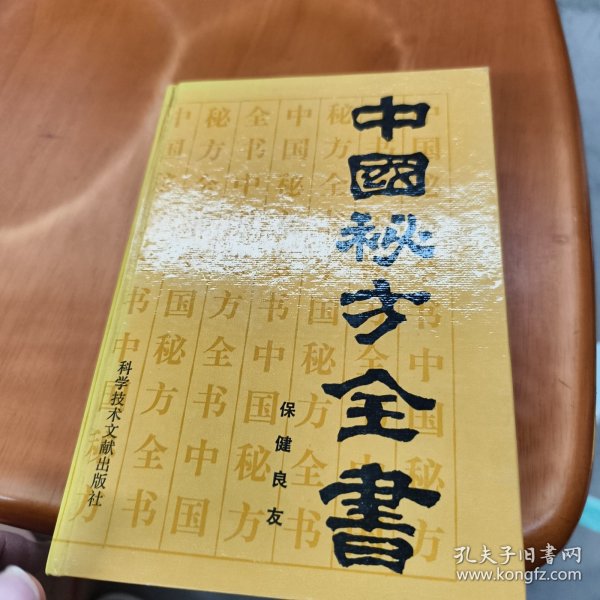 中國秘方全書
保健良友
科学技术文献出版社
孔夫子旧書网
www.kongfz.com